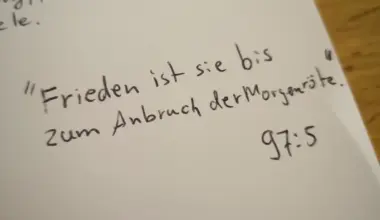 ele.
"Frieden ist sie bis
zum Anbruch der Morgenröte."
97:5